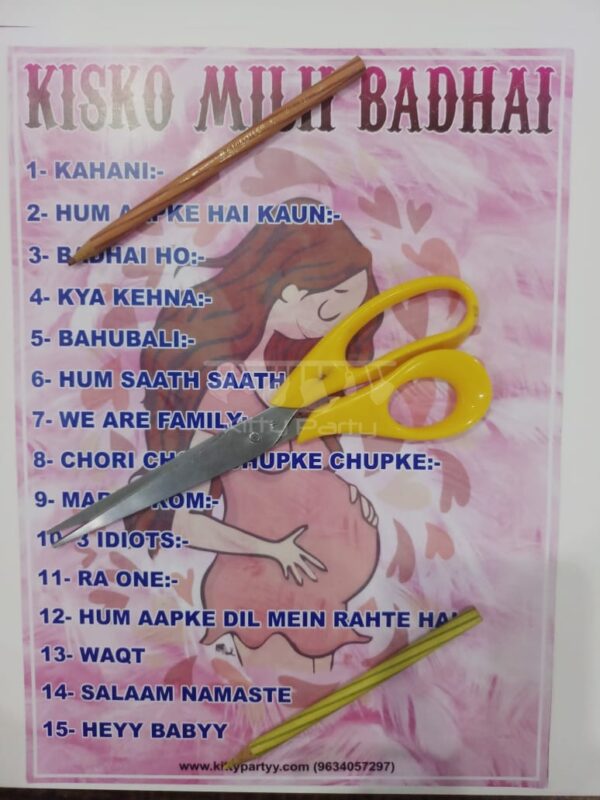 KISKO MILII BADHAI
1- KAHANI:-
2- HUM AAPKE HAI KAUN:-
3- BADHAI HO:-
4- KYA KEHNA:-
5- BAHUBALI:-
6- HUM SAATH SAATH
7- WE ARE FAMILY:-
8- CHORI CHUPKE CHUPKE:-
9- KOM:-
10- 3 IDIOTS:-
11- RA ONE:-
12- HUM AAPKE DIL MEIN RAHTE HAI
13- WAQT
14- SALAAM NAMASTE
15- HEYY BABYY
www.kittypartyy.com (9634057297)
Kitty Party